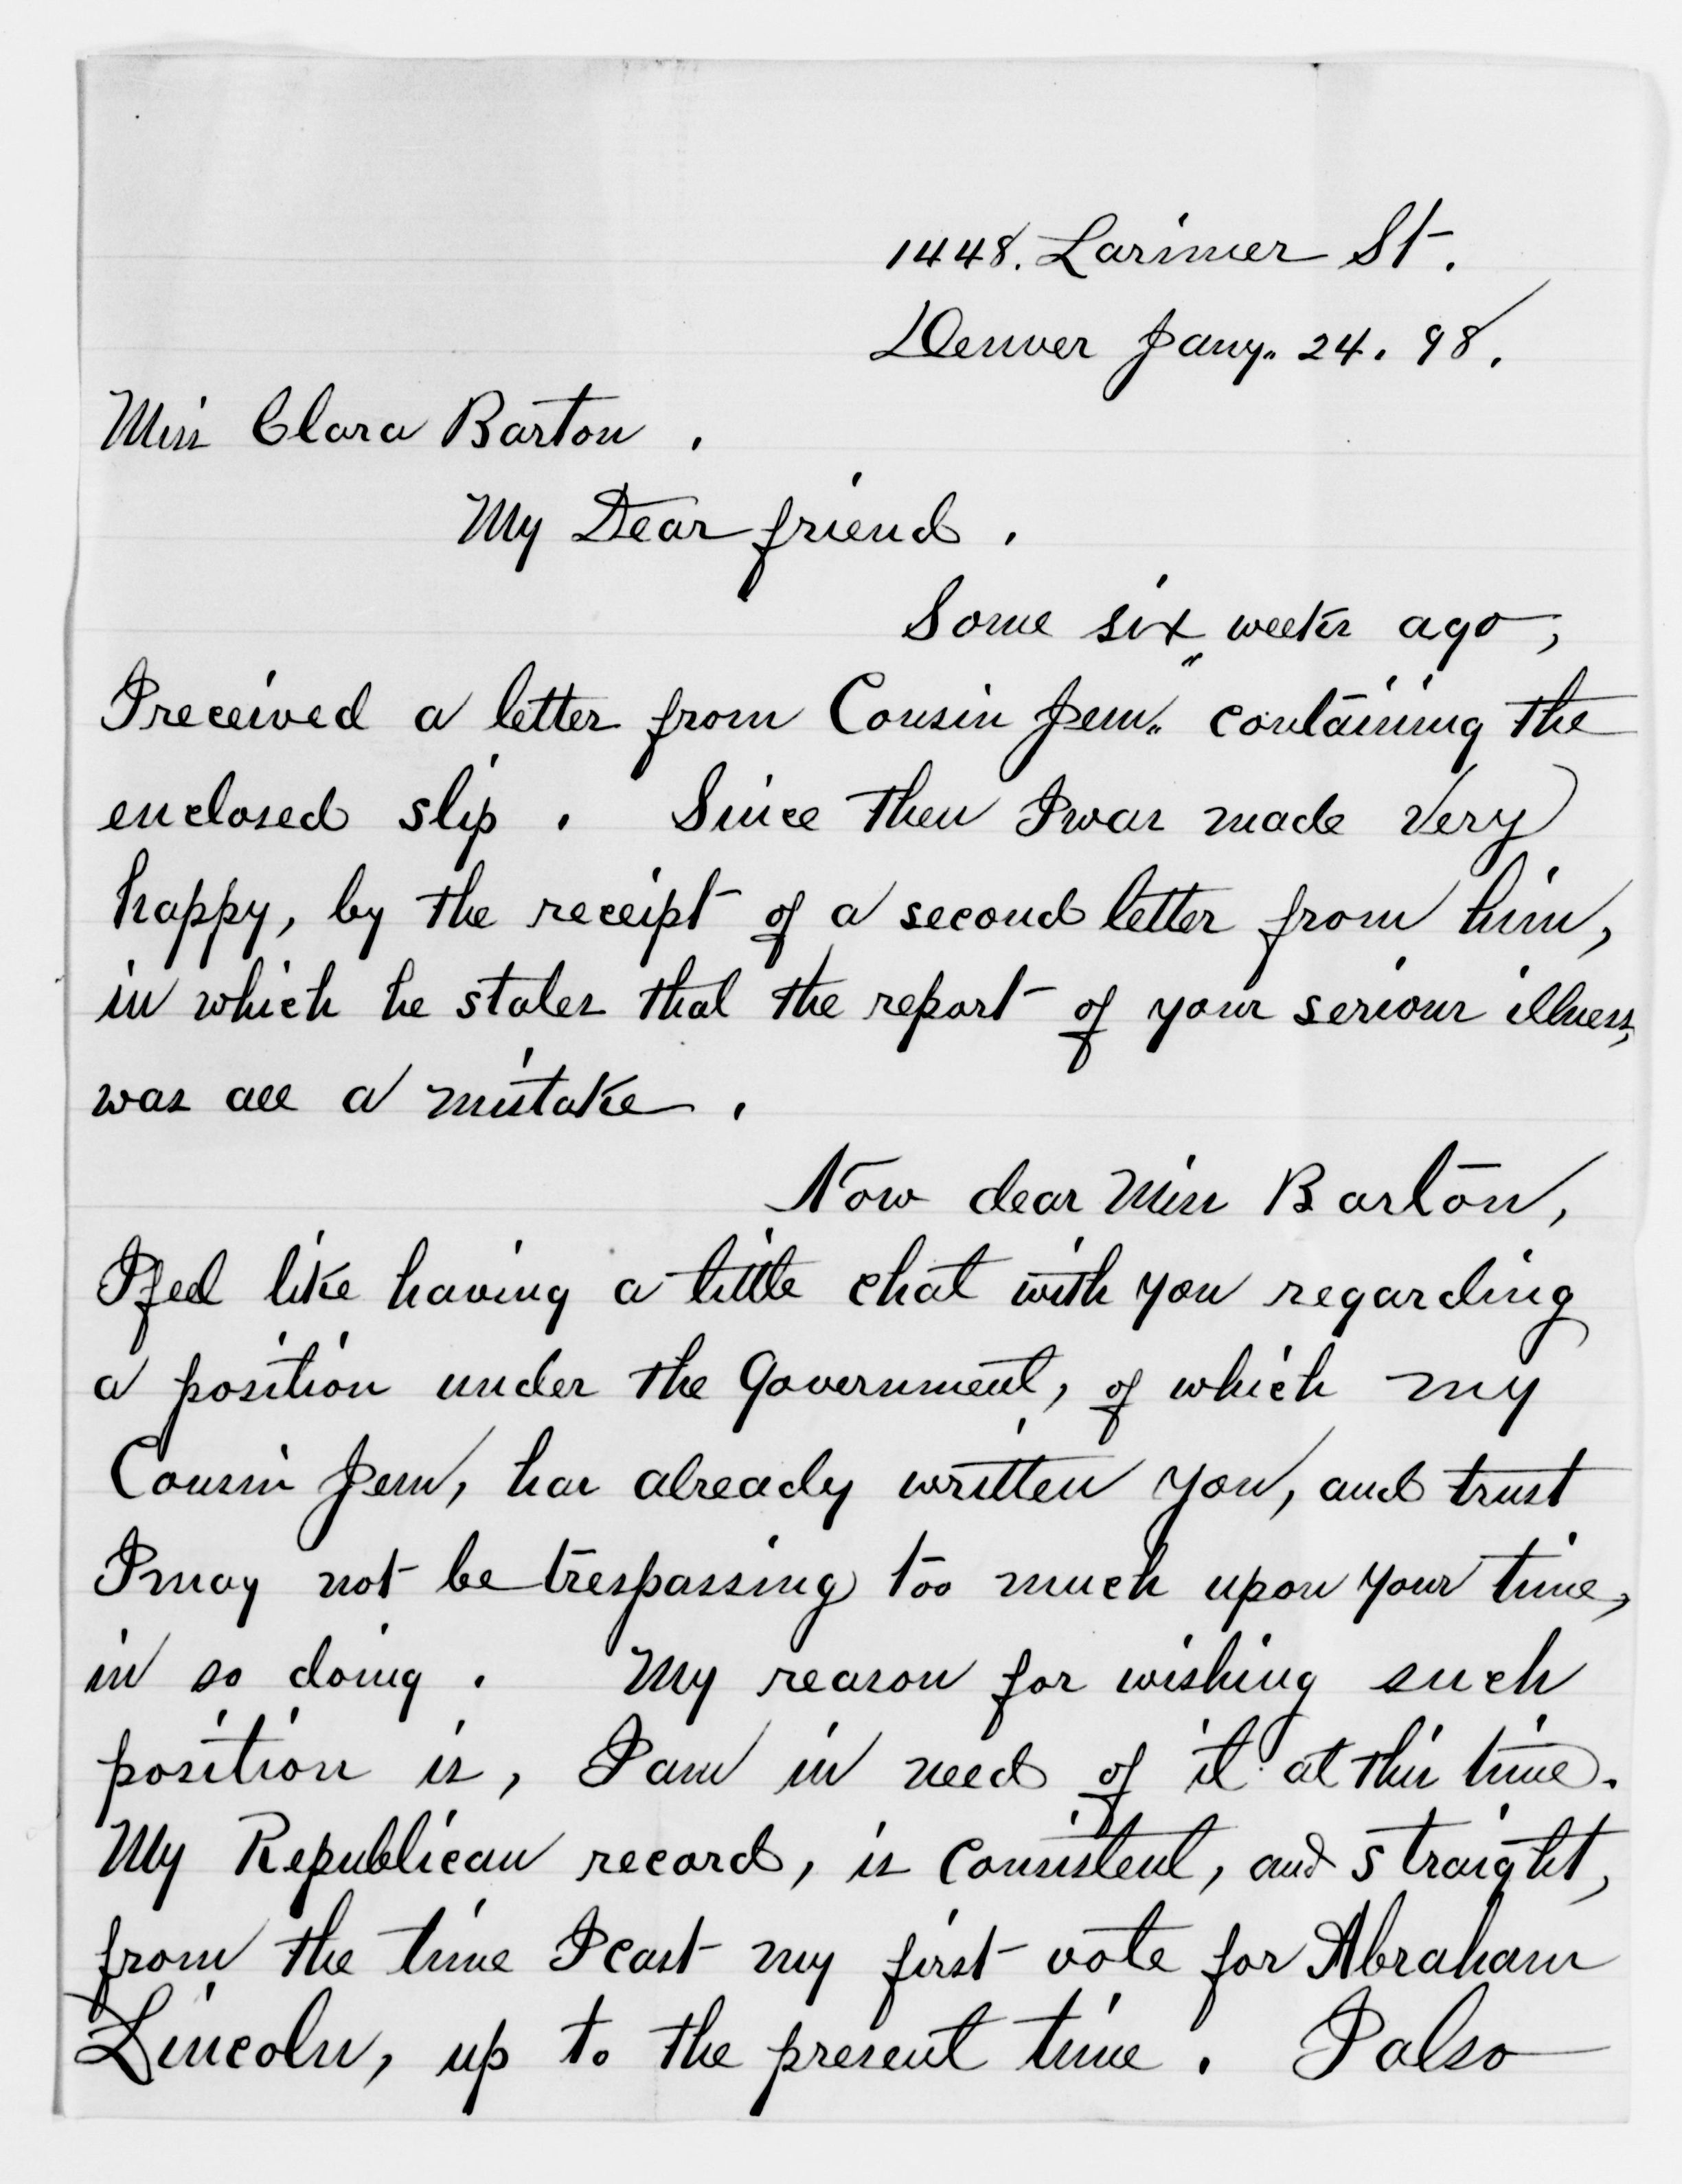 1448. Larimer St.
Denver Jany. 24. 98.
Miss Clara Barton.
My Dear friend.
Some six weeks ago,
I received a letter from Cousin "Jem" containing the
enclosed slip. Since then I was made very
happy, by the receipt of a second letter from him,
in which he states that the report of your serious illness,
was all a mistake.
Now dear Miss Barton,
I feel like having a little chat with you regarding
a position under the Government, of which my
Cousin Jem, has already written you, and trust
I may not be trespassing too much upon your time,
in so doing. My reason for wishing such
position is, I am in need of it at this time.
My Republican record, is consistent, and straight,
from the time I cast my first vote for Abraham
Lincoln, up to the present time. I also